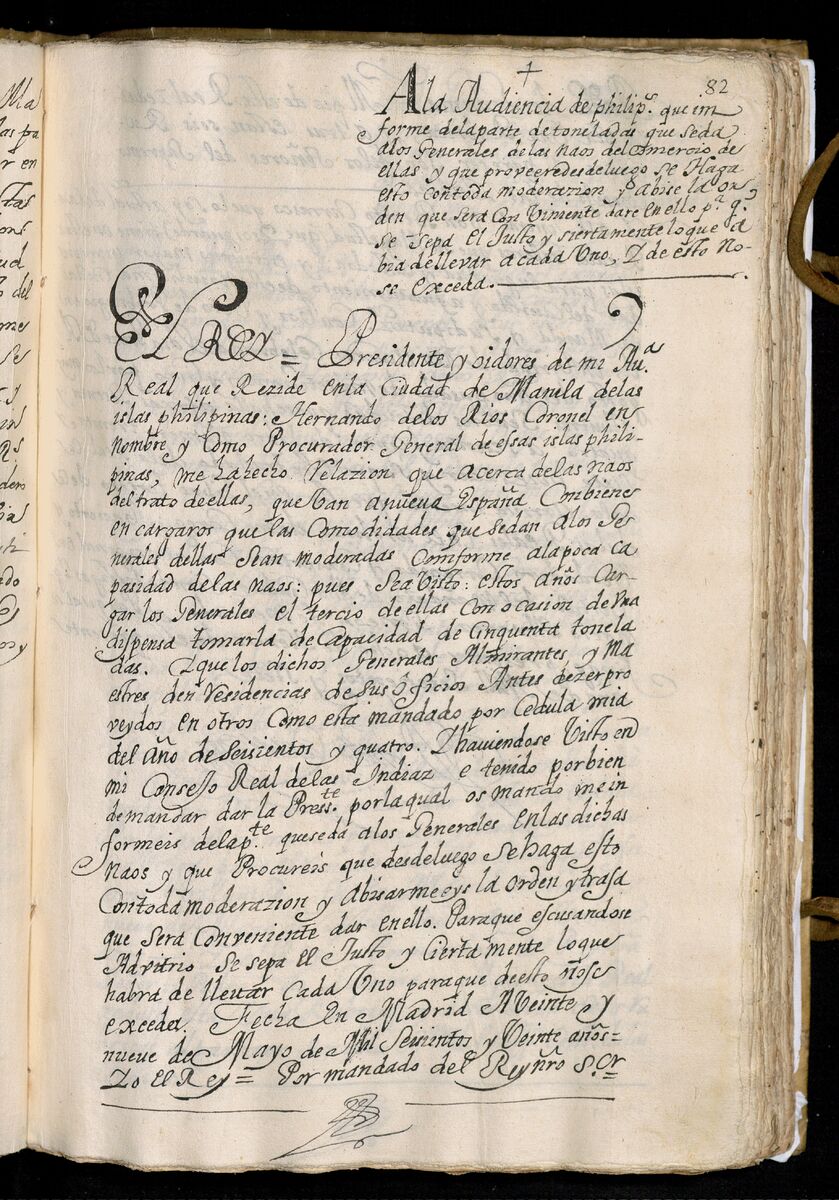 82
A la Audiencia de philip.s que im
forme de la parte de toneladas que se da
a los Generales de las naos del comercio de
ellas y que provee desde luego se Haga
esto con toda moderazion y abise la or
den que sera Con Viniente dare en ello p.a q.
se sepa El Justo y siertamente lo que a
bia de llevar a cada Uno, Y de esto No
se exceda.
El REY = Presidente y oidores de mi Au.a
Real que Rezide en la Ciudad de Manila de las
islas philipinas: Hernando de los Rios Coronel en
Nombre y Como Procurador General de essas islas phili-
pinas, me ha hecho Relazion que acerca de las naos
del trato de ellas, que Van a nueva España Combiene
en cargaros que las Comodidades que se dan a los Ge
nerales dellas sean moderadas Comforme a la poca ca
pasidad de las naos: pues se a Visto: estos años Car-
gar los Generales el tercio de ellas con ocasion de Una
dispensa tomarla de Capacidad de Cinquenta tonela
das. Y que los dichos Generales Almirantes, y Ma
estres den Residencias de sus officios Antes de zer pro
veydos en otros Como esta mandado por Cedula mia
del Año de Seisientos y quatro. Y haviendose Visto en
mi Consejo Real de las Indiaz e tenido por bien
de mandar dar la Press.te por la qual os mando me in
formeis de la p.te que se da a los Generales en las dichas
Naos y que Procureis que desde luego se haga esto
Con toda moderazion y Abisarmeeys la orden y trasa
que Sera Conveniente dar en ello. Para que escusandose
Advitrio se sepa el Justo y Cierta mente lo que
habra de llevar Cada Uno para que de esto no se
exceda. Fecha En Madrid A Veinte y
nueve de Mayo de Mil Seisientos y Veinte años=
Yo El Rey = Por mandado del Rey nro S.or